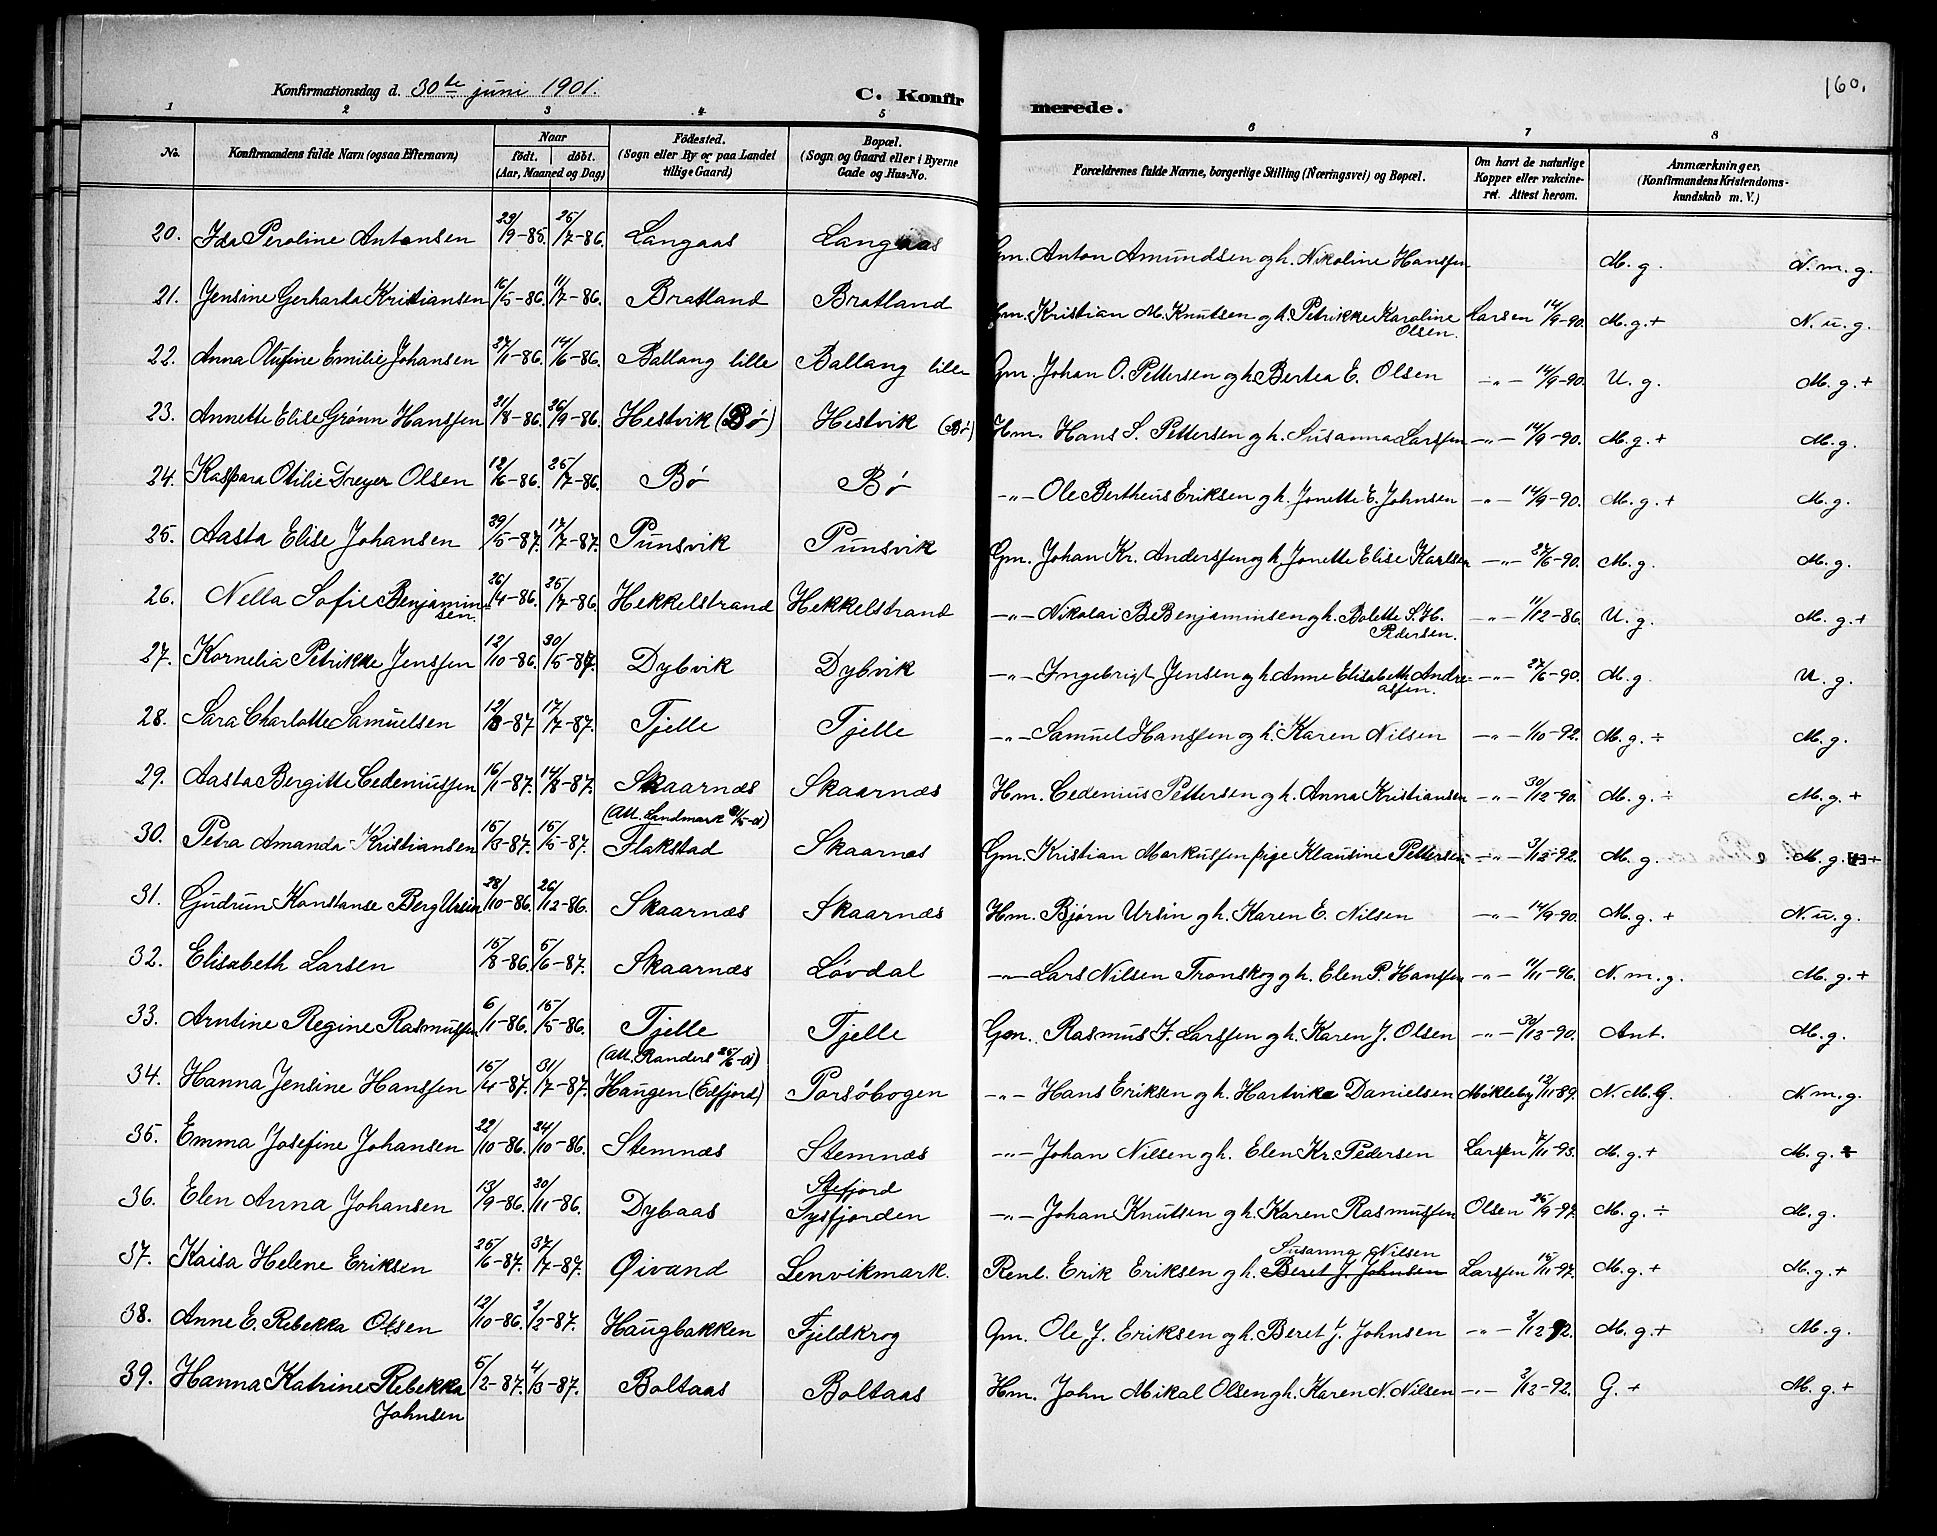 Konfirmationsdag d. 30te juni 1901. C. Konfirmerede. 160.
1 2 3 4 5 6 7 8
No. Konfirmandens fulde Navn (ogsaa Efternavn) Naar født. døbt. (Aar, Maaned og Dag) Fødested. (Sogn eller By or paa Landet tillige Gaard) Bopæl. (Sogn og Gaard eller i Byerne Gade og Hus-No. Forældrenes fulde Navne, borgerlige Stilling (Næringsvei) og Bopæl. Om havt de naturlige Kopper eller vakcineret. Attest herom. Anmærkninger, (Konfirmandens Kristendomskundskab m. V.)
20. Ida Peroline Antonsen 29/9-85. 25/7-86. Langaas Langaas Gm. Anton Amundsen og h. Nikoline Hanssen M. g. N. m. g.
21. Jensine Gerharda Kristiansen 16/5-86. 11/7-86. Bratland Bratland Hm. Kristian M. Knutsen og h. Petrikke Karoline Olsen. Larsen 14/9-90. M. g. + N. u. g.
22. Anna Olufine Emilie Johansen 27/1-86. 14/6-86. Ballang lille Ballang lille Gm. Johan O. Pettersen og h. Bertea E. Olsen -"- 14/9-90. U. g. M. g. +
23. Annette Elise Grønn Hanssen 21/8-86. 26/9-86. Hestvik (Bø) Hestvik (Bø) Hm. Hans S. Pettersen og h. Susanna Larssen -"- 14/9-90. M. g. + M. g.
24. Kaspara Otilie Dreyer Olsen 12/6-86. 25/7-86. Bø Bø -"- Ole Bertheus Eriksen og h. Jonette E. Johnsen -"- 14/9-90. M. g. + M. g.
25. Aasta Elise Johansen 29/5-87. 17/7-87. Punsvik Punsvik Gm. Johan Kr. Anderssen og h. Jonette Elise Karlsen -"- 27/6-90. M. g. M. g.
26. Nella Sofie Benjaminsen. 26/4-86. 25/7-86. Hekkelstrand Hekkelstrand -"- Nikolai B. Benjaminsen og h. Bolette S. H. Pedersen. -"- 11/12-86. U. g. M. g. +
27. Kornelia Petrikke Jenssen 12/10-86. 30/5-87. Dybvik Dybvik -"- Ingebrigt Jensen og h. Anne Elisabeth Andreassen. -"- 27/6-90. M. g. U. g.
28. Sara Charlotte Samuelsen 12/3-87 17/7-87. Tjelle Tjelle -"- Samuel Hanssen og h. Karen Nilsen -"- 1/10-92. M. g. ÷ M. g.
29. Aasta Bergitte Cedeniussen 16/1-87. 14/8-87. Skaarnæs Skaarnæs Hm. Cedenius Pettersen og h. Anna Kristiansen -"- 30/12-90. M. g. ÷ M. g. +
30. Petra Amanda Kristiansen 15/3-87. 15/5-87. (Att. Landmark /5-01) Flakstad Skaarnæs Gm. Kristian Markussen pige Klausine Pettersen -"- 3/12-92. M. g. M. g. +
31. Gudrun Konstanse Berg Ursin 28/10-86. 26/12-86. Skaarnæs Skaarnæs Hm. Bjørn Ursin og h. Karen E. Nilsen -"- 14/9-90. M. g. + N. u. g.
32. Elisabeth Larsen 15/8-86. 5/6-87. Skaarnæs Løvdal -"- Lars Nilsen Tronskog h. Elen P. Hanssen -"- 11/11-96. N. m. g. M. g. +
33. Arntine Regine Rasmussen 6/1-86. 15/5-86. Tjelle Tjelle Gm. Rasmus J. Larssen og h. Karen J. Olsen -"- 30/12-90. Ant. M. g.
34. Hanna Jensine Hanssen 15/4-87. 31/7-87. (Att. Randers 25/6-01) Haugen (Eidfjord) Porsøbogen -"- Hans Eriksen og h. Hartvike Danielsen Mikleby 12/11-89. N. M. G. N. m. g.
35. Emma Josefine Johansen 22/10-86. 24/10-86. Stemnæs Stemnæs -"- Johan Nilsen og h. Elen Kr. Pedersen Larsen 7/11-93. M. g. + M. g.
36. Elen Anna Johansen 13/9-86. 30/11-86. Dybaas Stefjord Tysfjorden -"- Johan Knutsen og h. Karen Rasmussen Olsen 25/9-97. M. g. ÷ M. g.
37. Kaisa Helene Eriksen 25/6-87. 37/7-87. Øivand Lenvikmark. Renl. Erik Eriksen og h. Susanna Nilsen Beret J. Johnsen Larssen 15/11-97. M. g. + M. g. +
38. Anne E. Rebekka Olsen 12/10-86. 2/2-87. Haugbakken Fjeldkrog Gm. Ole J. Eriksen og h. Beret J. Johnsen -"- 3/12 92. M. g. + M. g.
39. Hanna Katrine Rebekka Johnsen 5/2-87. 4/3-87. Boltaas Boltaas Hm. John Mikal Olsen og h. Karen N. Nilsen -"- 3/12-92. G. + M. g. +